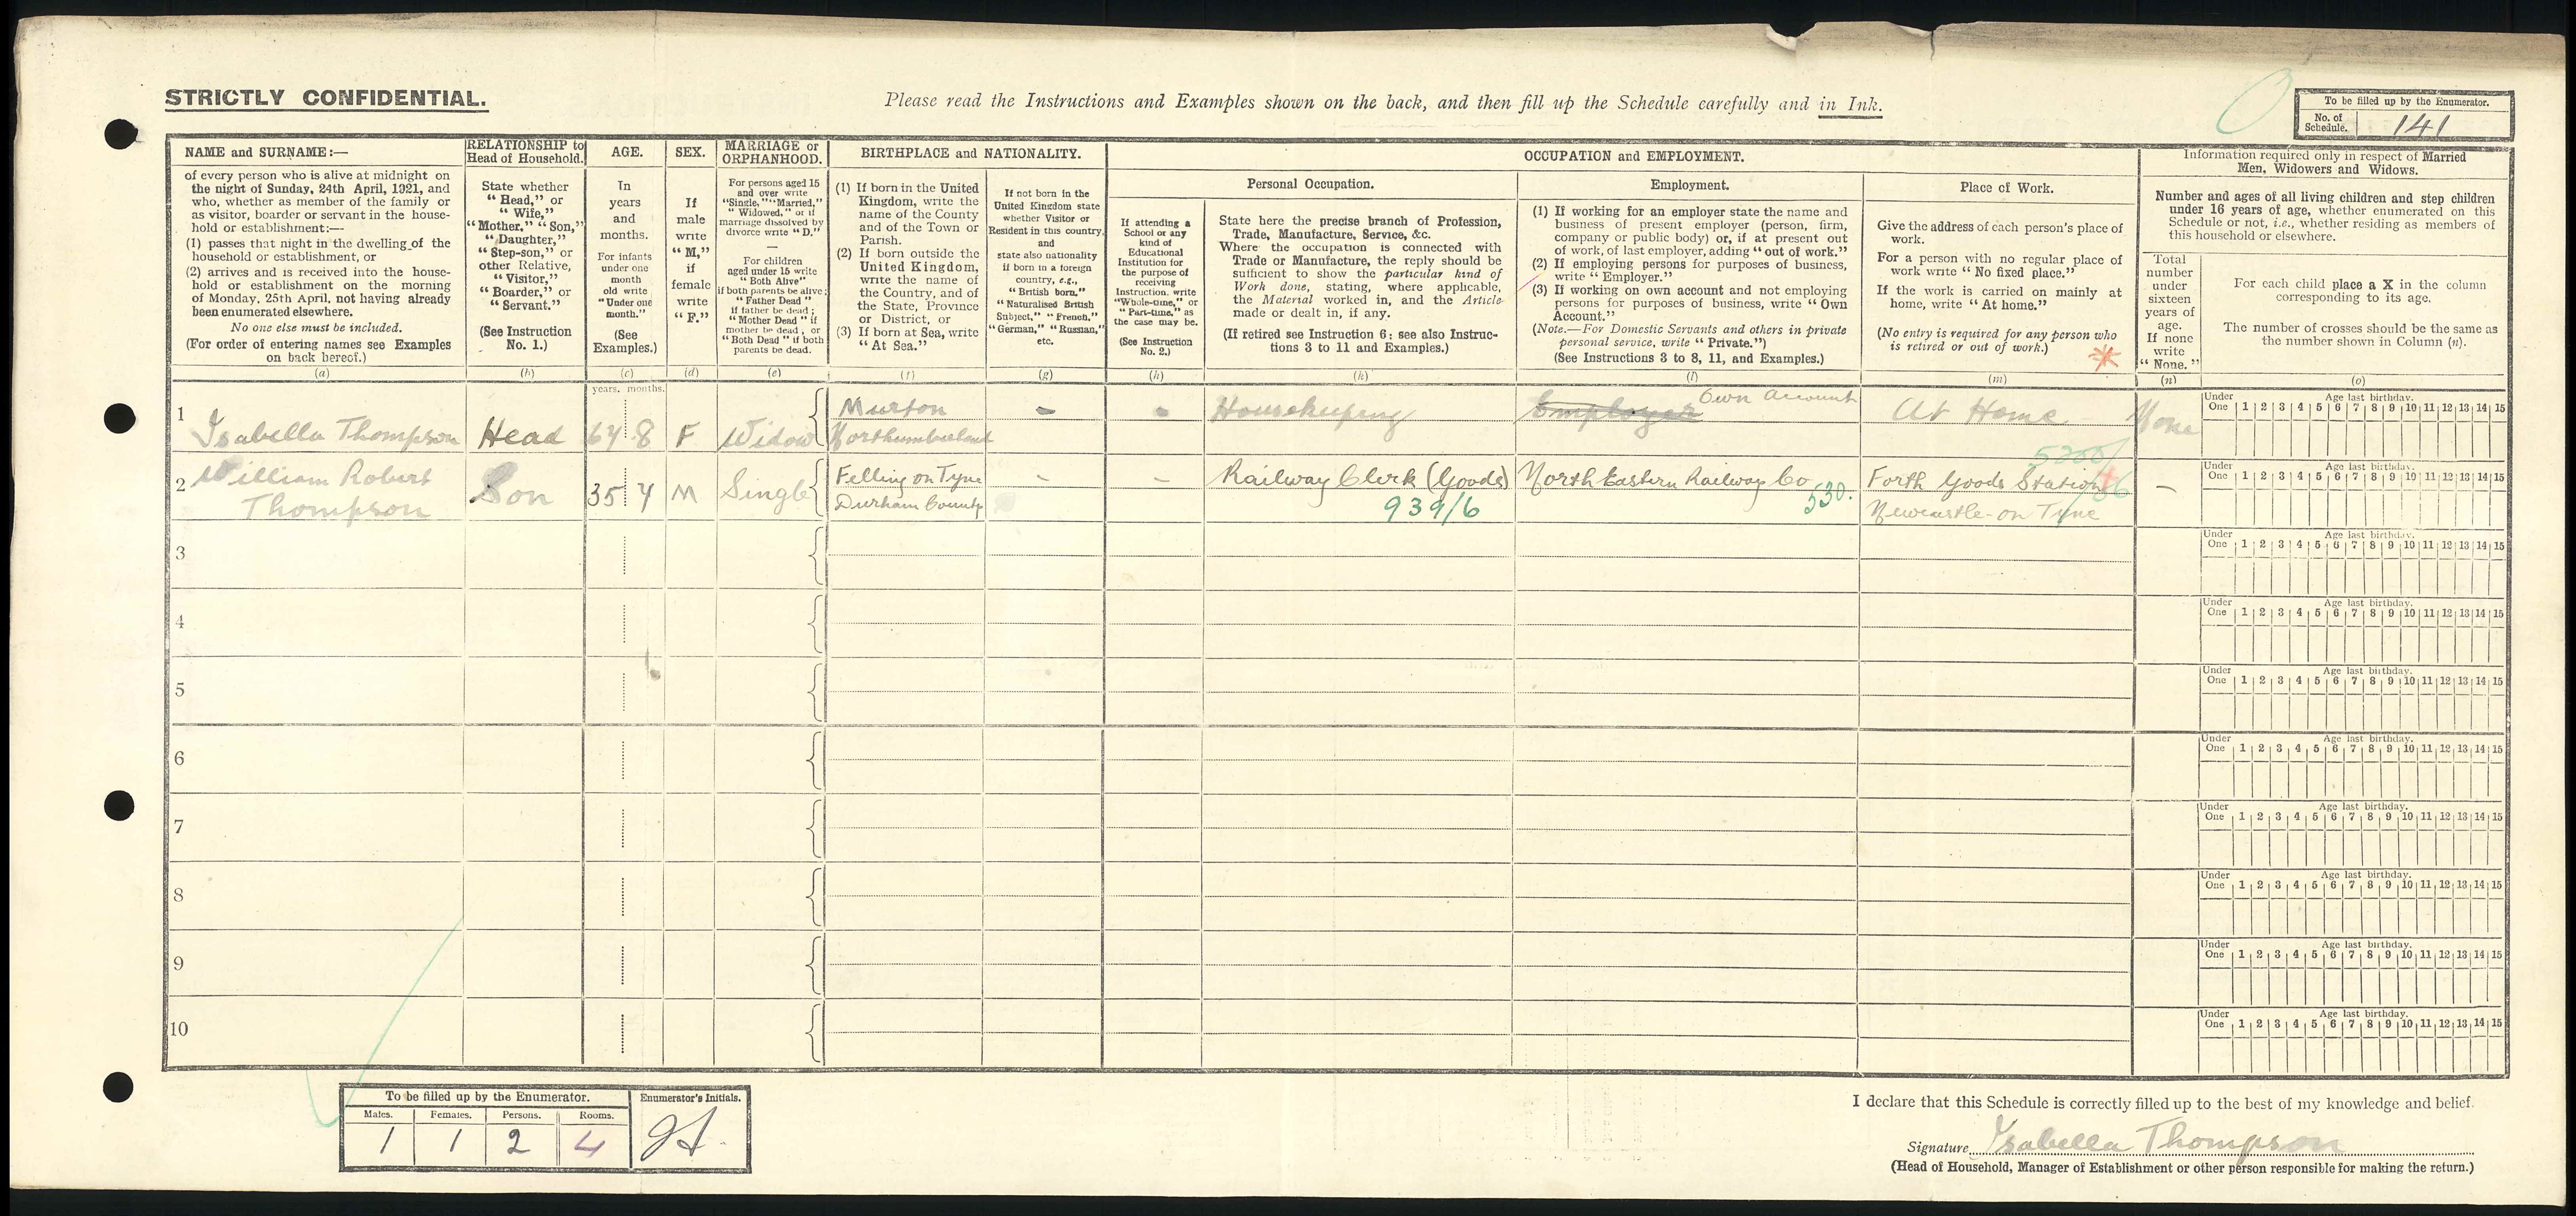 STRICTLY CONFIDENTIAL.
Please read the Instructions and Examples shown on the back, and then fill up the Schedule carefully and in Ink.
To be filled up by the Enumerator.
No. of Schedule. 141
NAME and SURNAME:—
of every person who is alive at midnight on
the night of Sunday, 24th April, 1921, and
who, whether as member of the family or
as visitor, boarder or servant in the house-
hold or establishment:—
(1) passes that night in the dwelling of the
household or establishment, or
(2) arrives and is received into the house-
hold or establishment on the morning
of Monday, 25th April, not having already
been enumerated elsewhere.
No one else must be included.
(For order of entering names see Examples
on back hereof.)
(a)
RELATIONSHIP to
Head of Household.
State whether
"Head," or
"Wife,"
"Mother," "Son,"
"Daughter,"
"Step-son," or
other Relative,
"Visitor,"
"Boarder," or
"Servant."
(See Instruction
No. 1.)
(b)
AGE.
In
years
and
months.
For infants
under one
month
old write
"Under one
month."
(See
Examples.)
(c)
SEX.
If
male
write
"M,"
if
female
write
"F."
(d)
MARRIAGE or
ORPHANHOOD.
For persons aged 15
and over write
"Single," "Married,"
"Widowed," or if
marriage dissolved by
divorce write "D."
—
For children
aged under 15 write
"Both Alive"
if both parents be alive;
"Father Dead"
if father be dead;
"Mother Dead" if
mother be dead; or
"Both Dead" if both
parents be dead.
(e)
BIRTHPLACE and NATIONALITY.
(1) If born in the United
Kingdom, write the
name of the County
and of the Town or
Parish.
(2) If born outside the
United Kingdom,
write the name of
the Country, and of
the State, Province
or District, or
(3) If born at Sea, write
"At Sea."
(f)
If not born in the
United Kingdom state
whether Visitor or
Resident in this country,
and
state also nationality
if born in a foreign
country, e.g.,
"British born."
"Naturalised British
Subject," "French,"
"German," "Russian,"
etc.
(g)
OCCUPATION and EMPLOYMENT.
Personal Occupation.
If attending a
School or any
kind of
Educational
Institution for
the purpose of
receiving
Instruction, write
"Whole-time," or
"Part-time," as
the case may be.
(See Instruction
No. 2.)
(h)
State here the precise branch of Profession,
Trade, Manufacture, Service, &c.
Where the occupation is connected with
Trade or Manufacture, the reply should be
sufficient to show the particular kind of
Work done, stating, where applicable,
the Material worked in, and the Article
made or dealt in, if any.
(If retired see Instruction 6: see also Instruc-
tions 3 to 11 and Examples.)
(k)
Employment.
(1) If working for an employer state the name and
business of present employer (person, firm,
company or public body) or, if at present out
of work, of last employer, adding "out of work."
(2) If employing persons for purposes of business,
write "Employer."
(3) If working on own account and not employing
persons for purposes of business, write "Own
Account."
(Note.—For Domestic Servants and others in private
personal service, write "Private.")
(See Instructions 3 to 8, 11, and Examples.)
(l)
Place of Work.
Give the address of each person's place of
work.
For a person with no regular place of
work write "No fixed place."
If the work is carried on mainly at
home, write "At home."
(No entry is required for any person who
is retired or out of work.)
(m)
Information required only in respect of Married
Men, Widowers and Widows.
Number and ages of all living children and step children
under 16 years of age, whether enumerated on this
Schedule or not, i.e., whether residing as members of
this household or elsewhere.
Total
number
under
sixteen
years of
age.
If none
write
"None."
(n)
For each child place a X in the column
corresponding to its age.
The number of crosses should be the same as
the number shown in Column (n).
(o)
years. months.
1 Isabella Thompson Head 64 8 F Widow Murton Northumberland - - Housekeeping Employer Own Account At Home None
Under One Age last birthday. 1 2 3 4 5 6 7 8 9 10 11 12 13 14 15
2 William Robert Thompson Son 35 4 M Single Felling on Tyne Durham County - - Railway Clerk (Goods) 939/6 North Eastern Railway Co 530. Forth Goods Station Newcastle-on Tyne —
Under One Age last birthday. 1 2 3 4 5 6 7 8 9 10 11 12 13 14 15
3
Under One Age last birthday. 1 2 3 4 5 6 7 8 9 10 11 12 13 14 15
4
Under One Age last birthday. 1 2 3 4 5 6 7 8 9 10 11 12 13 14 15
5
Under One Age last birthday. 1 2 3 4 5 6 7 8 9 10 11 12 13 14 15
6
Under One Age last birthday. 1 2 3 4 5 6 7 8 9 10 11 12 13 14 15
7
Under One Age last birthday. 1 2 3 4 5 6 7 8 9 10 11 12 13 14 15
8
Under One Age last birthday. 1 2 3 4 5 6 7 8 9 10 11 12 13 14 15
9
Under One Age last birthday. 1 2 3 4 5 6 7 8 9 10 11 12 13 14 15
10
Under One Age last birthday. 1 2 3 4 5 6 7 8 9 10 11 12 13 14 15
To be filled up by the Enumerator.
Males. Females. Persons. Rooms.
1 1 2 4
Enumerator's Initials.
I declare that this Schedule is correctly filled up to the best of my knowledge and belief.
Signature Isabella Thompson
(Head of Household, Manager of Establishment or other person responsible for making the return.)